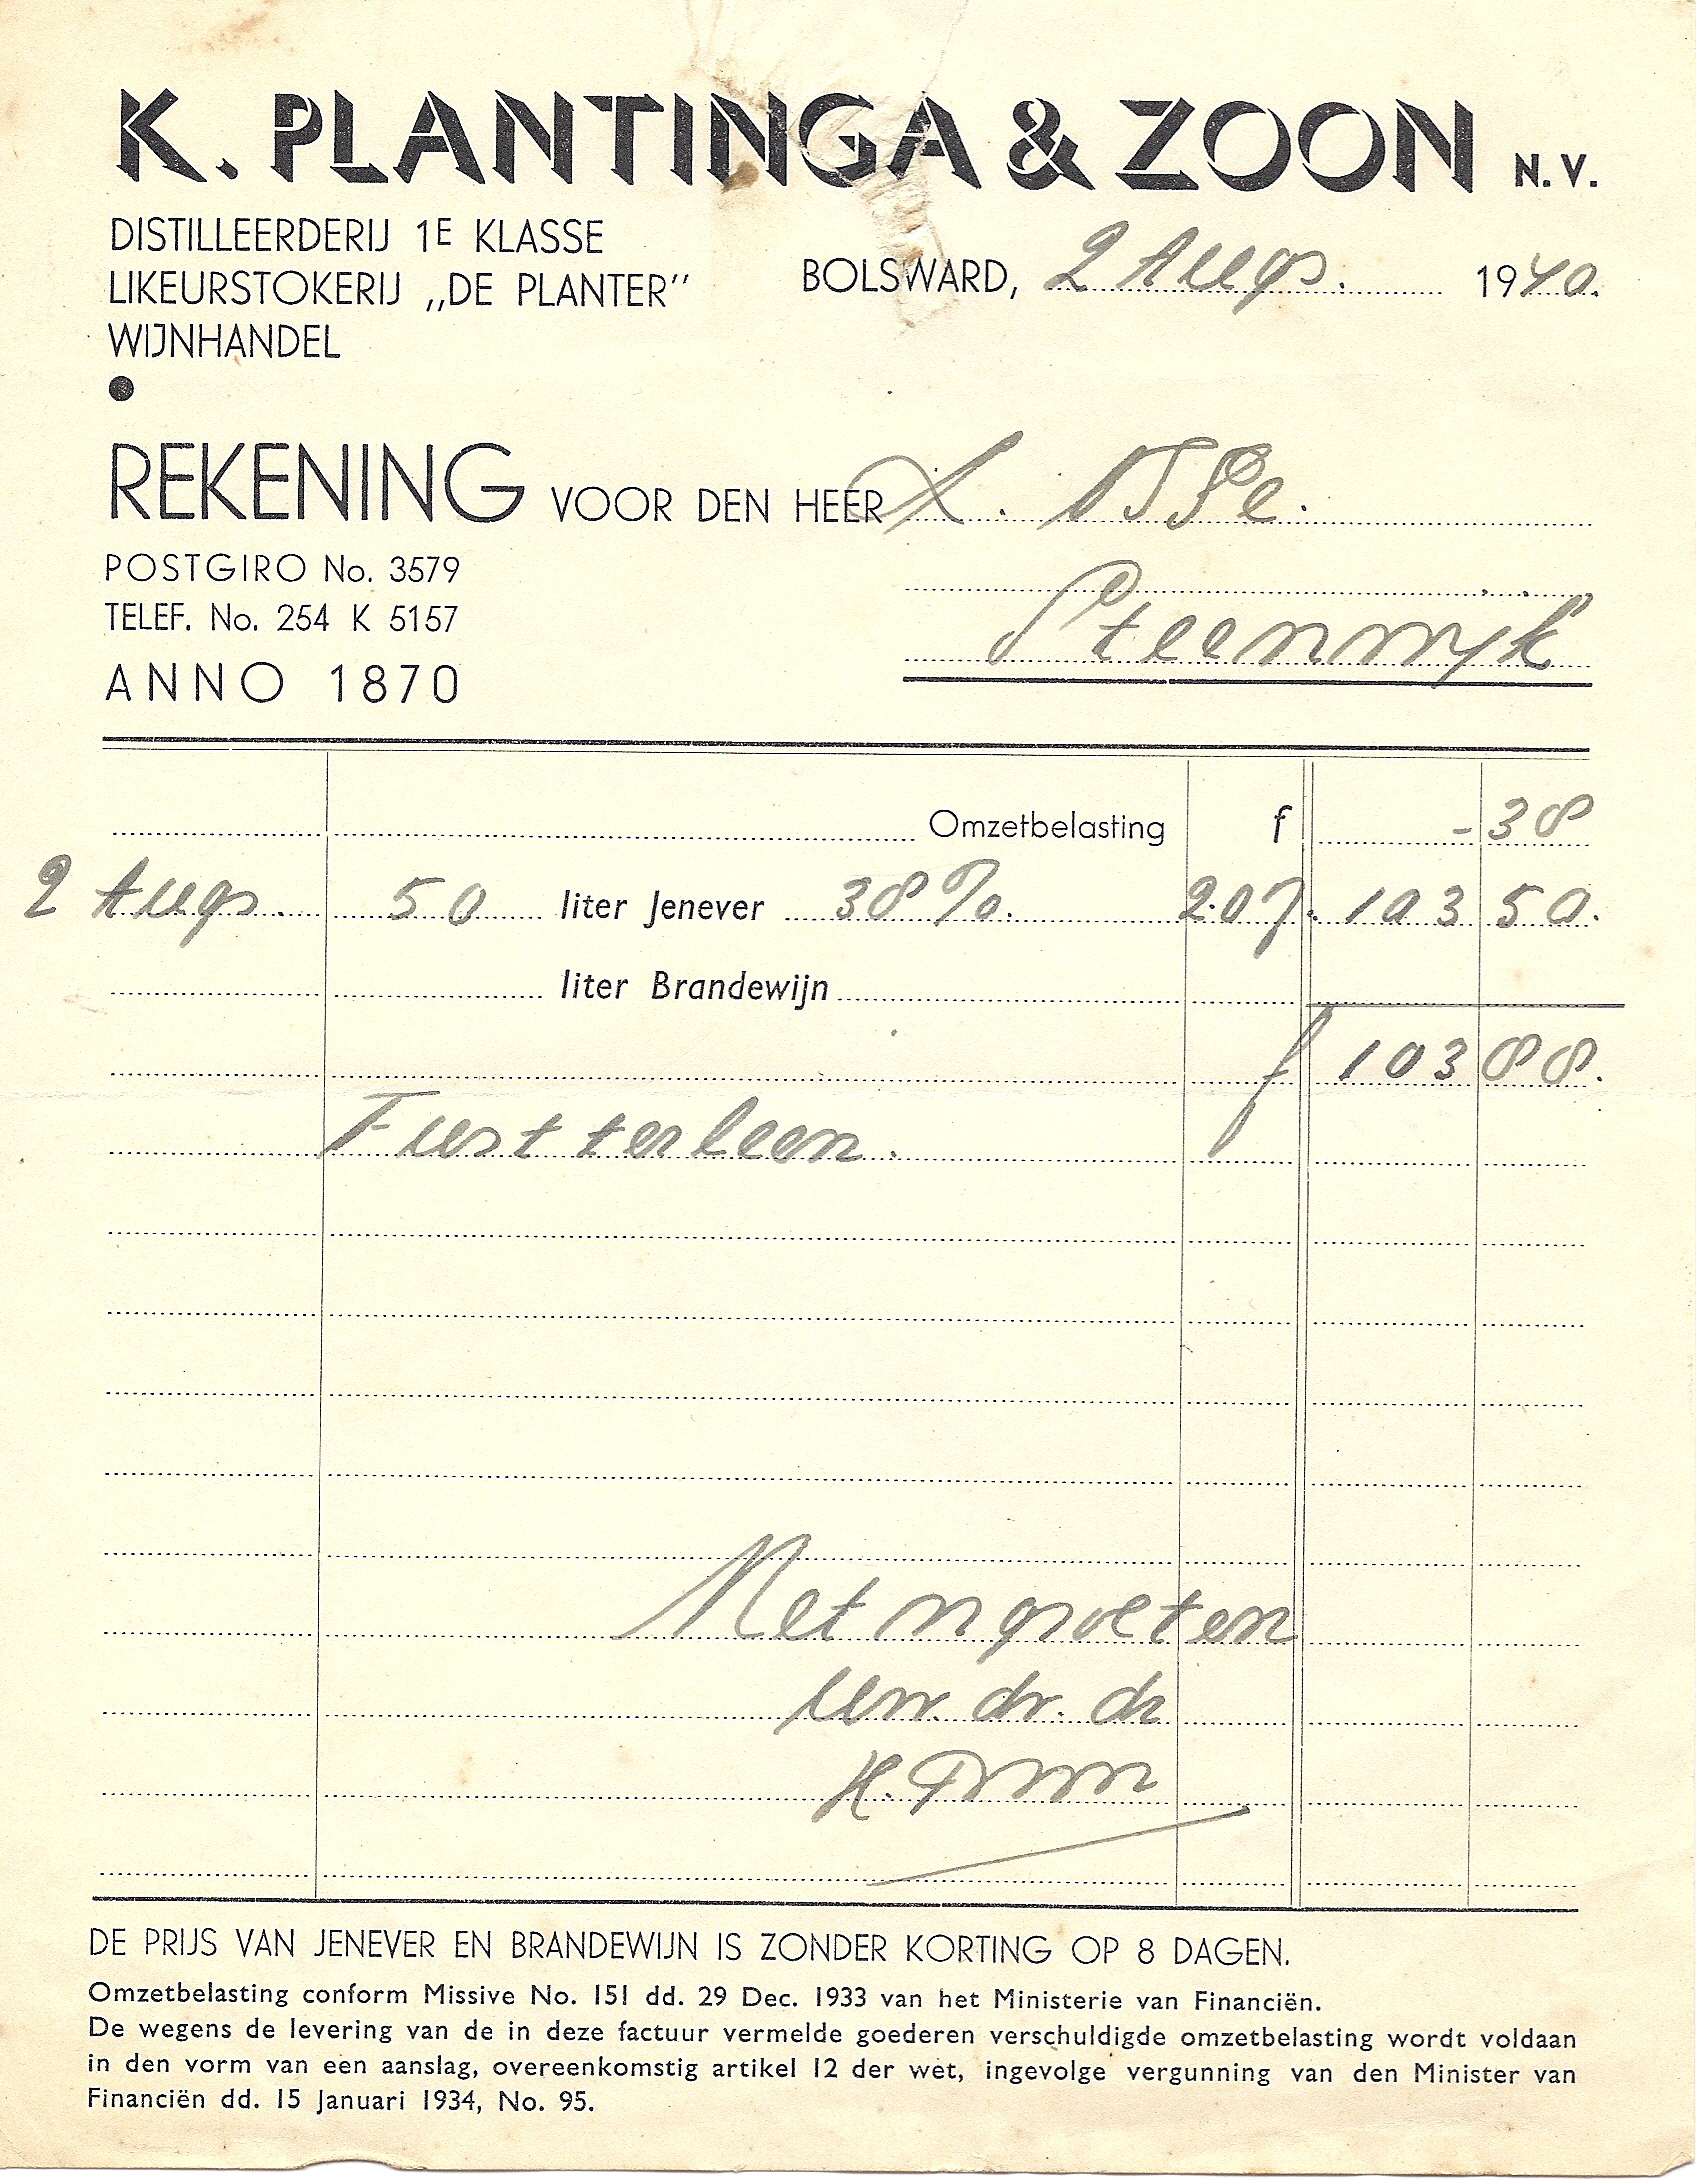 K. PLANTINGA & ZOON N.V.
DISTILLEERDERIJ 1E KLASSE
LIKEURSTOKERIJ „DE PLANTER”
WIJNHANDEL
BOLSWARD, 2 Aug. 1940.
REKENING VOOR DEN HEER
Steenwijk
POSTGIRO No. 3579
TELEF. No. 254 K 5157
ANNO 1870
Omzetbelasting f - 38
2 Aug. 50 liter Jenever 38%. 2.07. 103 50.
liter Brandewijn
f 103 88.
Fust ter leen.
Met n groeten
uw. dr. dr
H.
DE PRIJS VAN JENEVER EN BRANDEWIJN IS ZONDER KORTING OP 8 DAGEN.
Omzetbelasting conform Missive No. 151 dd. 29 Dec. 1933 van het Ministerie van Financiën.
De wegens de levering van de in deze factuur vermelde goederen verschuldigde omzetbelasting wordt voldaan
in den vorm van een aanslag, overeenkomstig artikel 12 der wet, ingevolge vergunning van den Minister van
Financiën dd. 15 Januari 1934, No. 95.